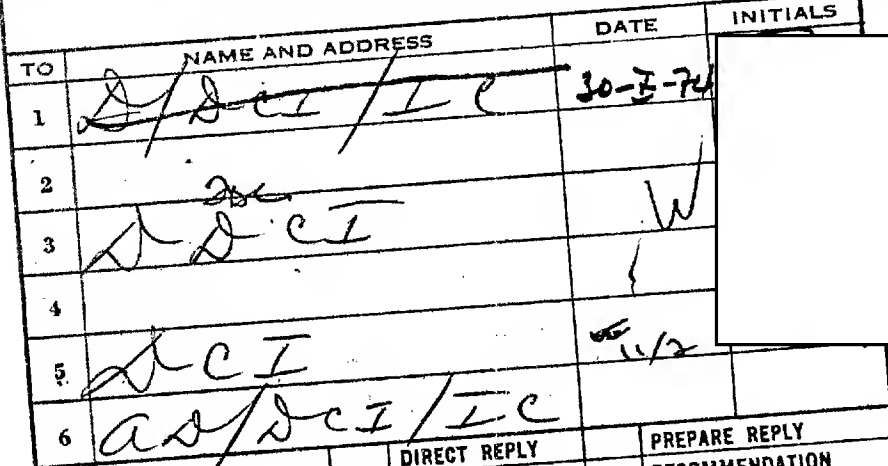 TO NAME AND ADDRESS DATE INITIALS
1 D/DCI/IC 30-I-74
2
3 DDCI W
4
5 DCI 11/2
6 AD/DCI/IC
DIRECT REPLY PREPARE REPLY
RECOMMENDATION